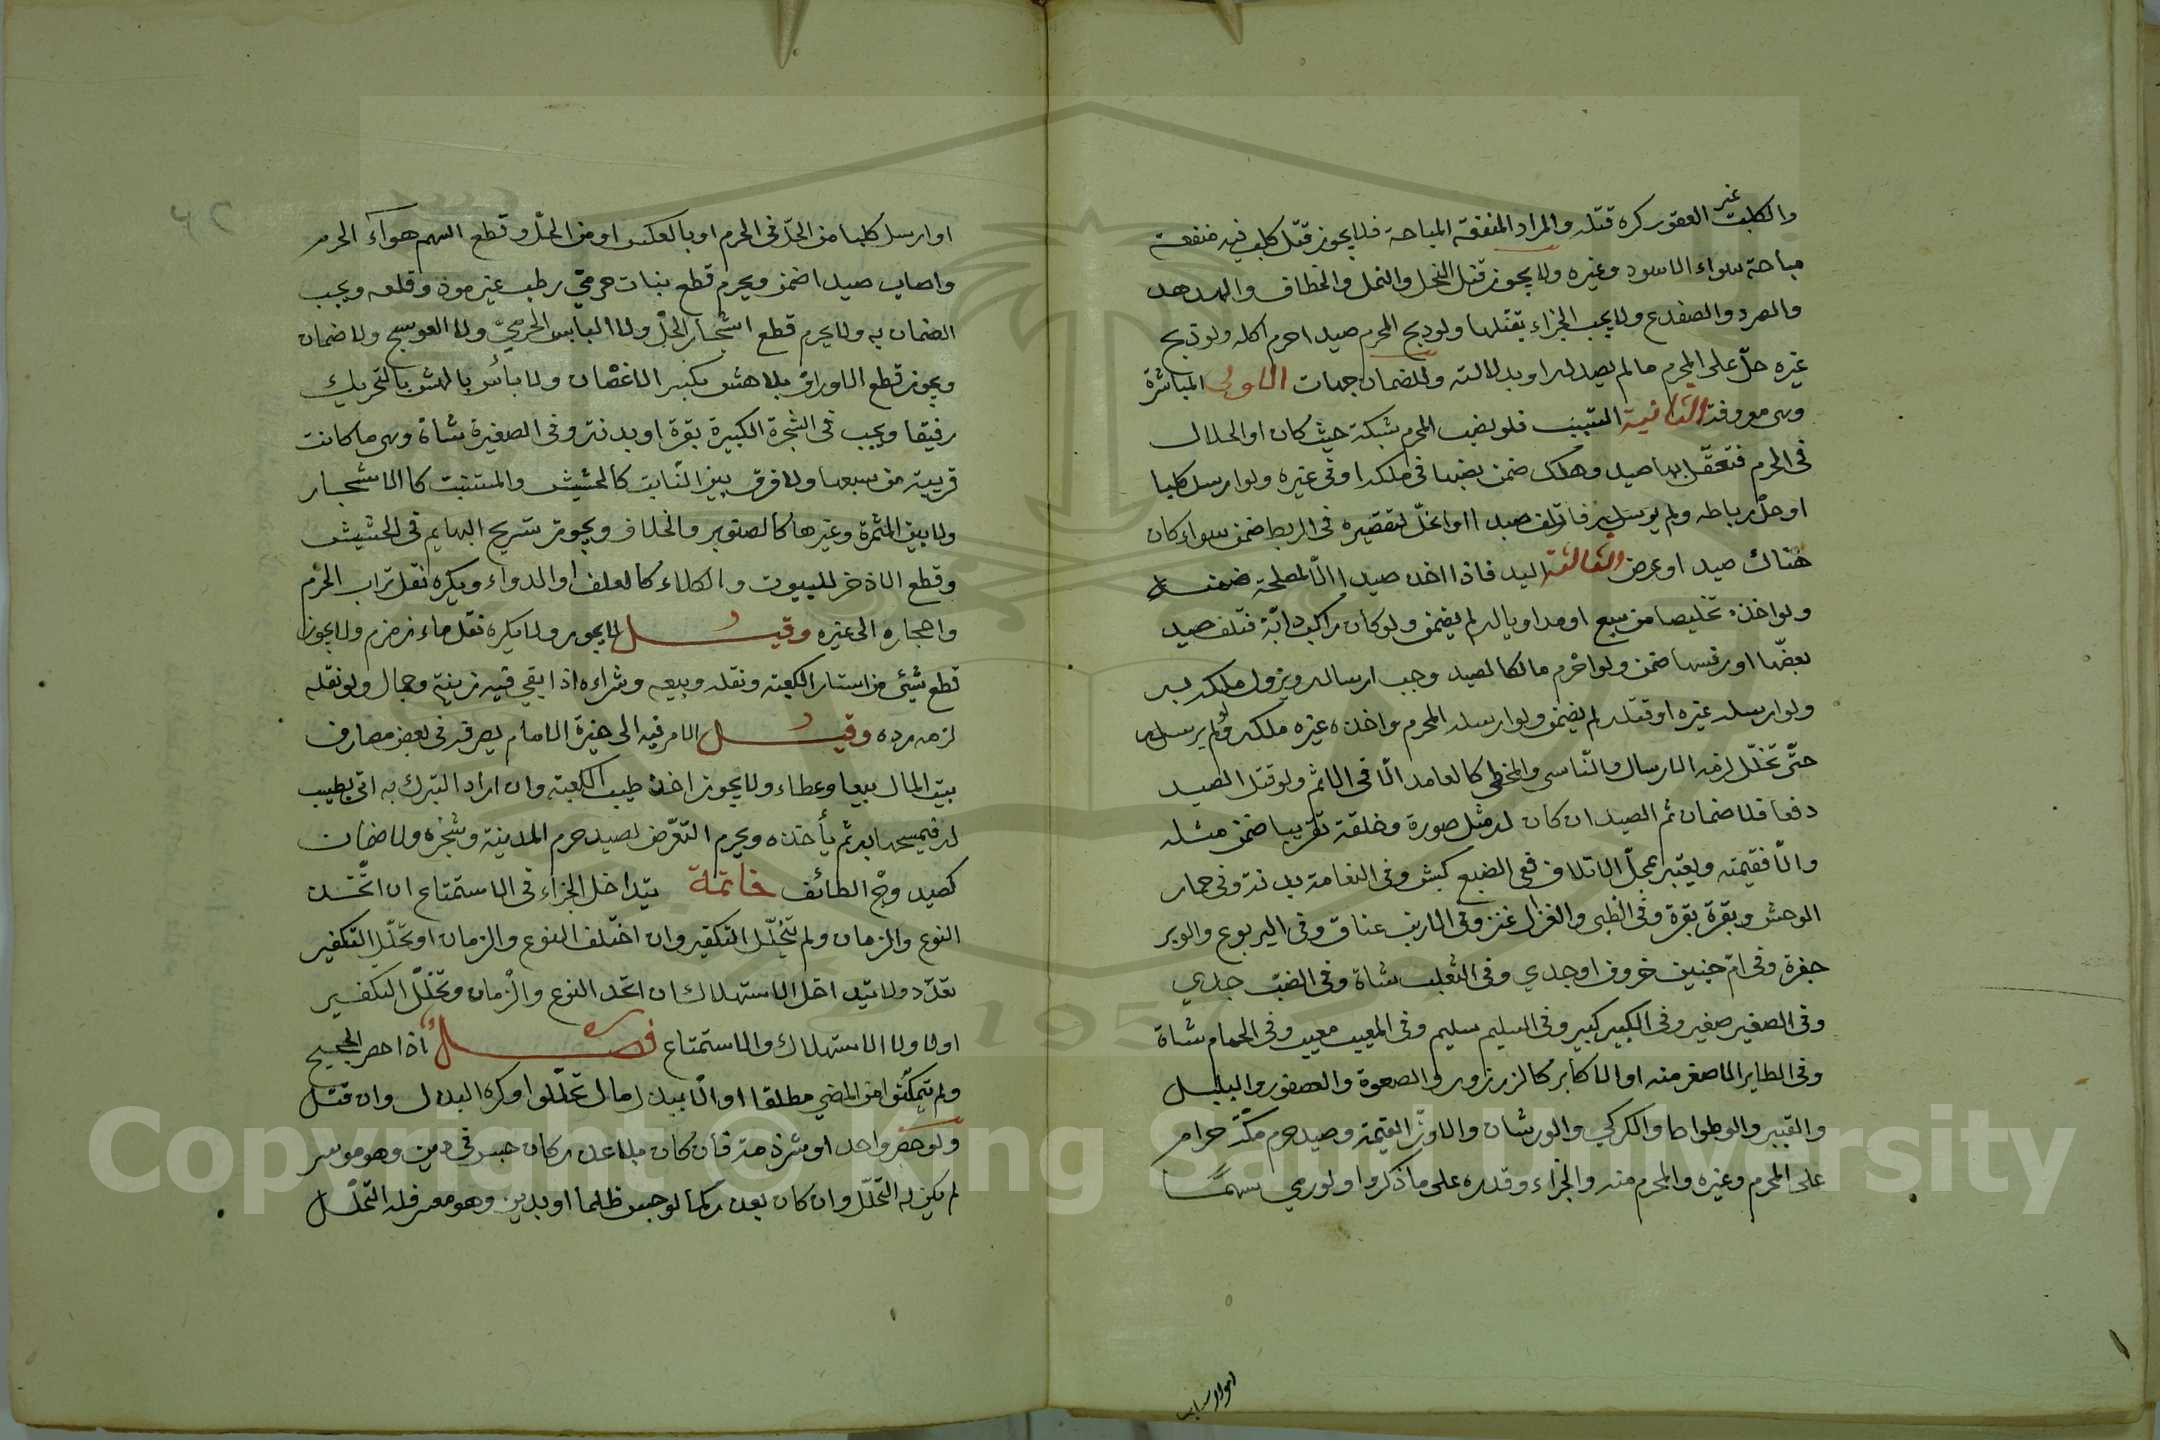 والكلب غير العقور كره قتله والمراد المنفعة المباحة فلا يجوز قتل كلب فيه منفعة
مباحة سواء الاسود وغيره ولا يجوز قتل النحل والنمل والخطاف والهدهد
والصرد والضفدع ولا يجب الجزاء بقتلها ولو ذبح المحرم صيدا حرم اكله ولو ذبح
غيره حل على المحرم ما لم يصد له او بدلالته وللضمان جهات الاولى المباشرة
وهي معروفة الثانية التسبب فلو نصب المحرم شبكة حيث كان او الحلال
في الحرم فتعقل بها صيد وهلك ضمن نصبها في ملكه او في غيره ولو ارسل كلبا
او حل رباطه ولم يرسل فاتلف صيدا او انحل لتقصيره في الربط ضمن سواء كان
هناك صيد او عرض الثالثة اليد فاذا اخذ صيدا الا لمصلحة ضمنه
ولو اخذه تخليصا من سبع او مداويا له لم يضمن ولو كان راكب دابة فتلف صيد
بعضها او رفسها ضمن ولو احرم مالكا لصيد وجب ارساله ويزول ملكه به
ولو ارسله غيره او قتله لم يضمن ولو ارسله المحرم واخذه غيره ملكه ولو لم يرسله
حتى تحلل لزمه الارسال والناسي والمخطي كالعامد الا في الاثم ولو قتل الصيد
دفعا فلا ضمان ثم الصيد ان كان له مثل صورة وخلقة تقريبا ضمن مثله
والا فقيمته ويعتبر بمحل الاتلاف ففي الضبع كبش وفي النعامة بدنة وفي حمار
الوحش وبقرة بقرة وفي الظبي والغزال عنز وفي الارنب عناق وفي اليربوع والوبر
جفرة وفي ام حبين خروف او جدي وفي الثعلب شاة وفي الضب جدي
وفي الصغير صغير وفي الكبير كبير وفي السليم سليم وفي المعيب معيب وفي الحمام شاة
وفي الطاير الاصغر منه او الاكابر كالزرزور والصعوة والعصفور والبلبل
والقبر والوطواط والكركي والورشان والاوز القيمة وصيد حرم مكة حرام
على المحرم وغيره والمحرم منه والجزاء وقدره على ما ذكروا ولو رمي سهما
او ارسل
او ارسل كلبا من الحل في الحرم او بالعكس او من الحل وقطع السهم هواء الحرم
واصاب صيدا ضمن ويحرم قطع نبات حرمي رطب غير موذ وقلعه ويجب
الضمان به ولا يحرم قطع اشجار الحل ولا اليابس الحرمي ولا العوسج ولا ضمان
ويجوز قطع الاوراق بلا هش يكسر الاغصان ولا باس بالهش بالتحريك
رفيقا ويجب في الشجرة الكبيرة بقرة او بدنة وفي الصغيرة شاة وهي ما كانت
قريبة من سبعها ولا فرق بين النابت كالحشيش والمستنبت كالاشجار
ولا بين المثمرة وغيرها كالصنوبر والخلاف ويجوز تسريح البهايم في الحشيش
وقطع الاذخر للبيوت والكلاء كالعلف او الدواء ويكره نقل تراب الحرم
واحجاره الى غيره وقيل لا يجوز ولا يكره نقل ماء زمزم ولا يجوز
قطع شيئ من استار الكعبة ونقله وبيعه وشراءه اذا بقي فيه زينة وجمال ولو نقله
لزمه رده وقيل الامر فيه الى خيرة الامام يصرفه في بعض مصارف
بيت المال بيعا وعطاء ولا يجوز اخذ طيب الكعبة وان اراد التبرك به اتى بطيب
له فيمسحها به ثم يأخذه ويحرم التعرض لصيد حرم المدينة وشجره ولا ضمان
كصيد وج الطائف خاتمة يتداخل الجزاء في الاستمتاع ان اتحد
النوع والزمان ولم يتخلل التكفير وان اختلف النوع والزمان او تخلل التكفير
تعدد ولا يتداخل الاستهلاك ان اتحد النوع والزمان وتخلل التكفير
اولا ولا الاستهلاك والاستمتاع فصل اذا حصر الحجيج
ولم يتمكنوا من المضي مطلقا او الا ببذل مال تحللوا وكره البذل وان قتل
ولو حصر واحد او شرذمة فان كان بلا عذر كان حبس في دين وهو موسر
لم يكن له التحلل وان كان بعذر كما لو حبس ظلما او بدين وهو معسر فله التحلل